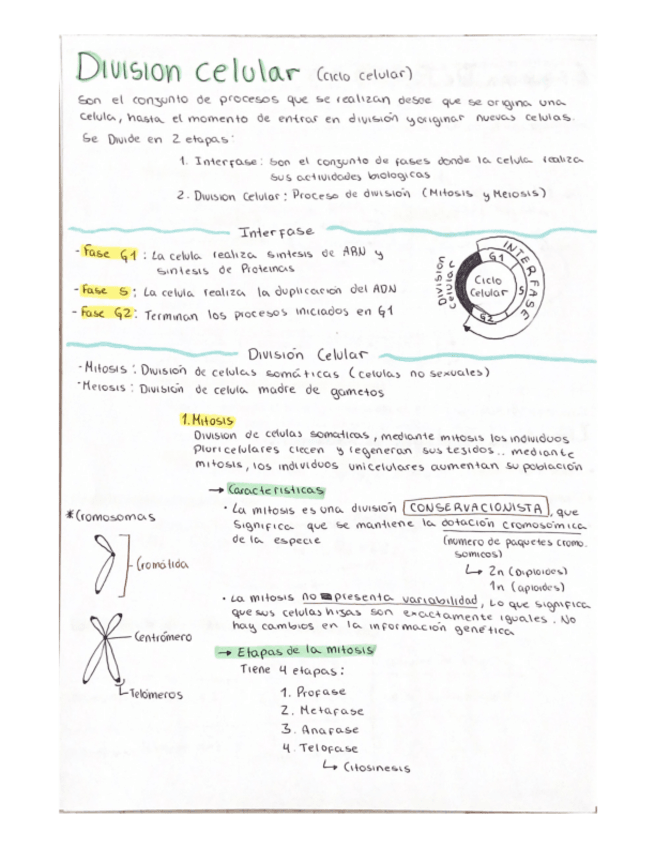 Division celular (ciclo celular)
Son el conjunto de procesos que se realizan desde que se origina una
celula, hasta el momento de entrar en división y originar nuevas celulas.
Se Divide en 2 etapas:
1. Interfase: Son el conjunto de fases donde la celula realiza
sus actividades biologicas
2. Division Celular: Proceso de división (Mitosis y Meiosis)
Interfase
- Fase G1: La celula realiza sintesis de ARN y
sintesis de Proteinas
- Fase S: La celula realiza la duplicación del ADN
- Fase G2: Terminan los procesos iniciados en G1
División Celular
INTERFASE
G1
S
G2
Ciclo
Celular
División Celular
- Mitosis: División de celulas somáticas (celulas no sexuales)
- Meiosis: División de celula madre de gametos
1. Mitosis
Division de celulas somaticas, mediante mitosis los individuos
Pluricelulares crecen y regeneran sus tejidos.. mediante
mitosis, los individuos unicelulares aumentan su población
→ Caracteristicas
• La mitosis es una división CONSERVACIONISTA, que
significa que se mantiene la dotación cromosómica
de la especie
(numero de paquetes cromo.
somicos)
↳ 2n (Diploides)
1n (aploides)
• La mitosis no presenta variabilidad, Lo que significa
que sus celulas hijas son exactamente iguales. No
hay cambios en la información genética
*Cromosomas
Cromátida
Centrómero
Telómeros
→ Etapas de la mitosis
Tiene 4 etapas:
1. Profase
2. Metafase
3. Anafase
4. Telofase
↳ Citosinesis